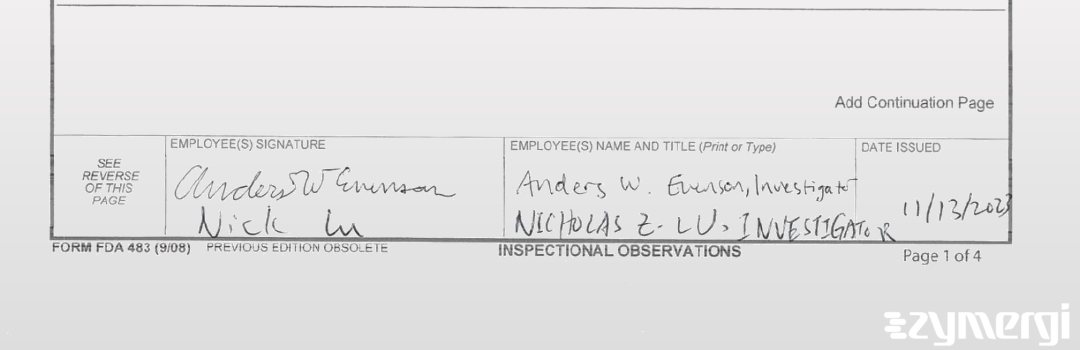 Add Continuation Page
SEE
REVERSE
OF THIS
PAGE
EMPLOYEE(S) SIGNATURE
Anders W Evenson
Nick Lu
EMPLOYEE(S) NAME AND TITLE (Print or Type)
Anders W. Evenson, Investigator
NICHOLAS Z. LU, INVESTIGATOR
DATE ISSUED
11/13/2023
FORM FDA 483 (9/08) PREVIOUS EDITION OBSOLETE INSPECTIONAL OBSERVATIONS Page 1 of 4
zymergi